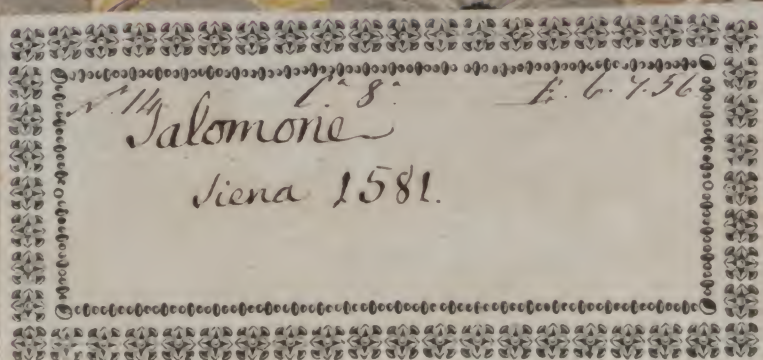 N. 14 C. 8. E. 6. 7. 56
Salomone
Siena 1581.